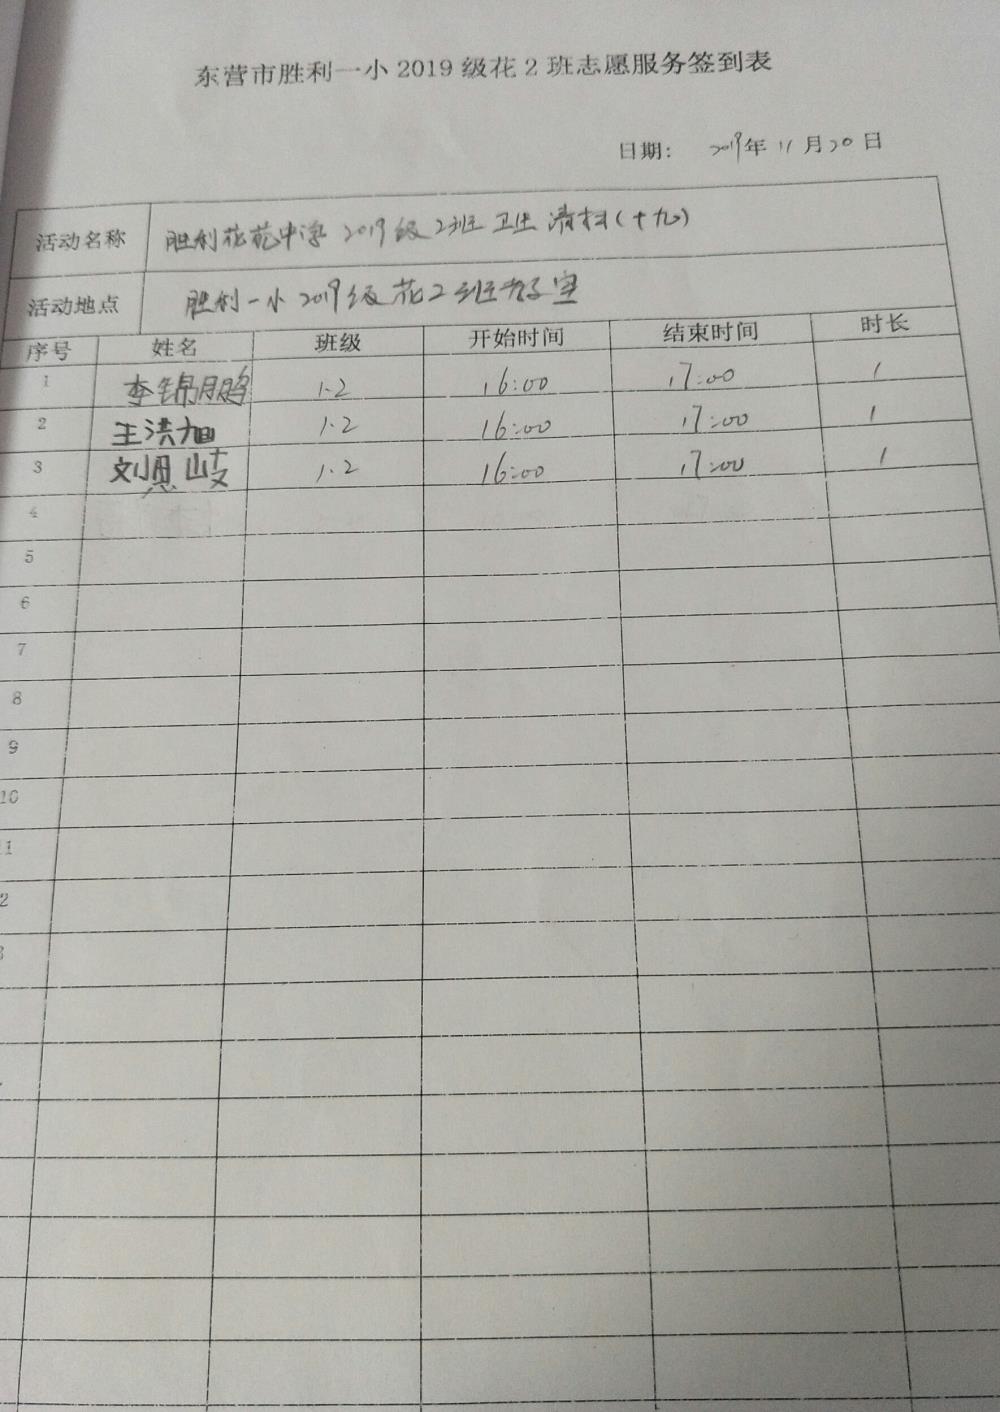 东营市胜利一小2019级花2班志愿服务签到表
日期： 2019年11月20日
活动名称 胜利花苑中学2019级2班卫生清扫(十九)
活动地点 胜利一小2019级花2班教室
序号 姓名 班级 开始时间 结束时间 时长
1 李锦鹏 1.2 16:00 17:00 1
2 王洪旭 1.2 16:00 17:00 1
3 刘恩岐 1.2 16:00 17:00 1
4
5
6
7
8
9
10
1
2
3